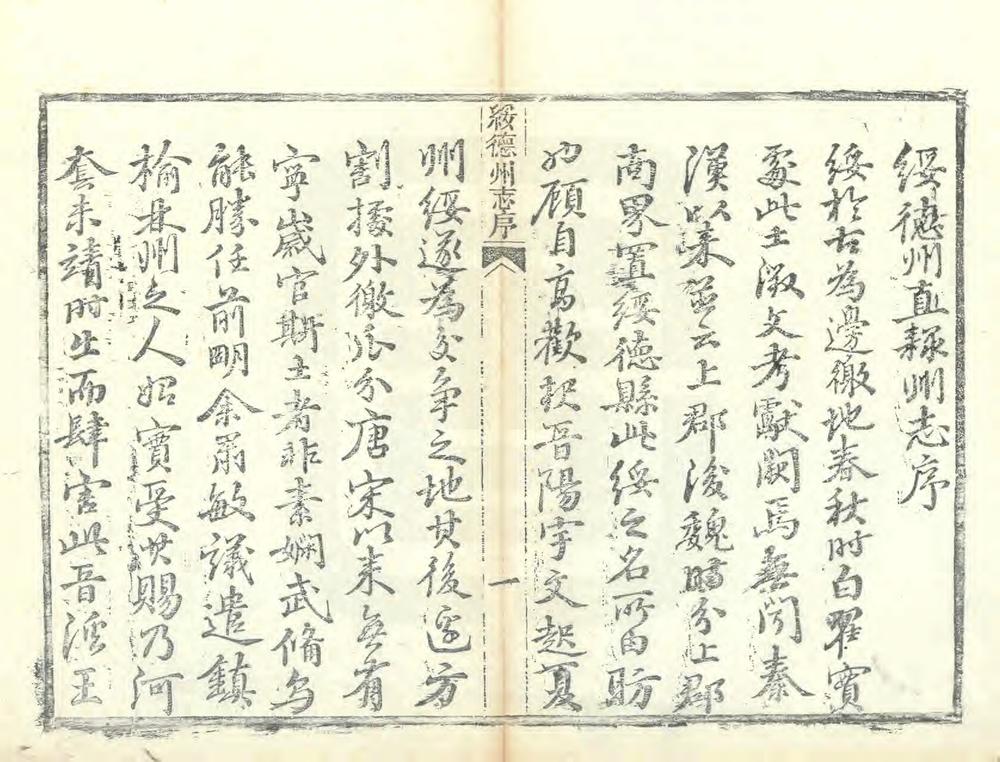 綏德州直隸州志序
綏於古為邊徼地春秋時白翟實
處此土徵文考獻闕焉無聞秦
漢以來並云上郡後魏時分上郡
高界置綏德縣此綏之名所由昉
也顧自高歡晉陽宇文起夏
綏德州志序
一
州綏遂為交爭之地其後邊方
割據外徼瓜分唐宋以來無有
寧歲官斯土者非素嫻武備烏
能勝任前明余肅敏議遣鎮
榆林州之人始實受其賜乃河
套未靖時出而肆害此晉溪王